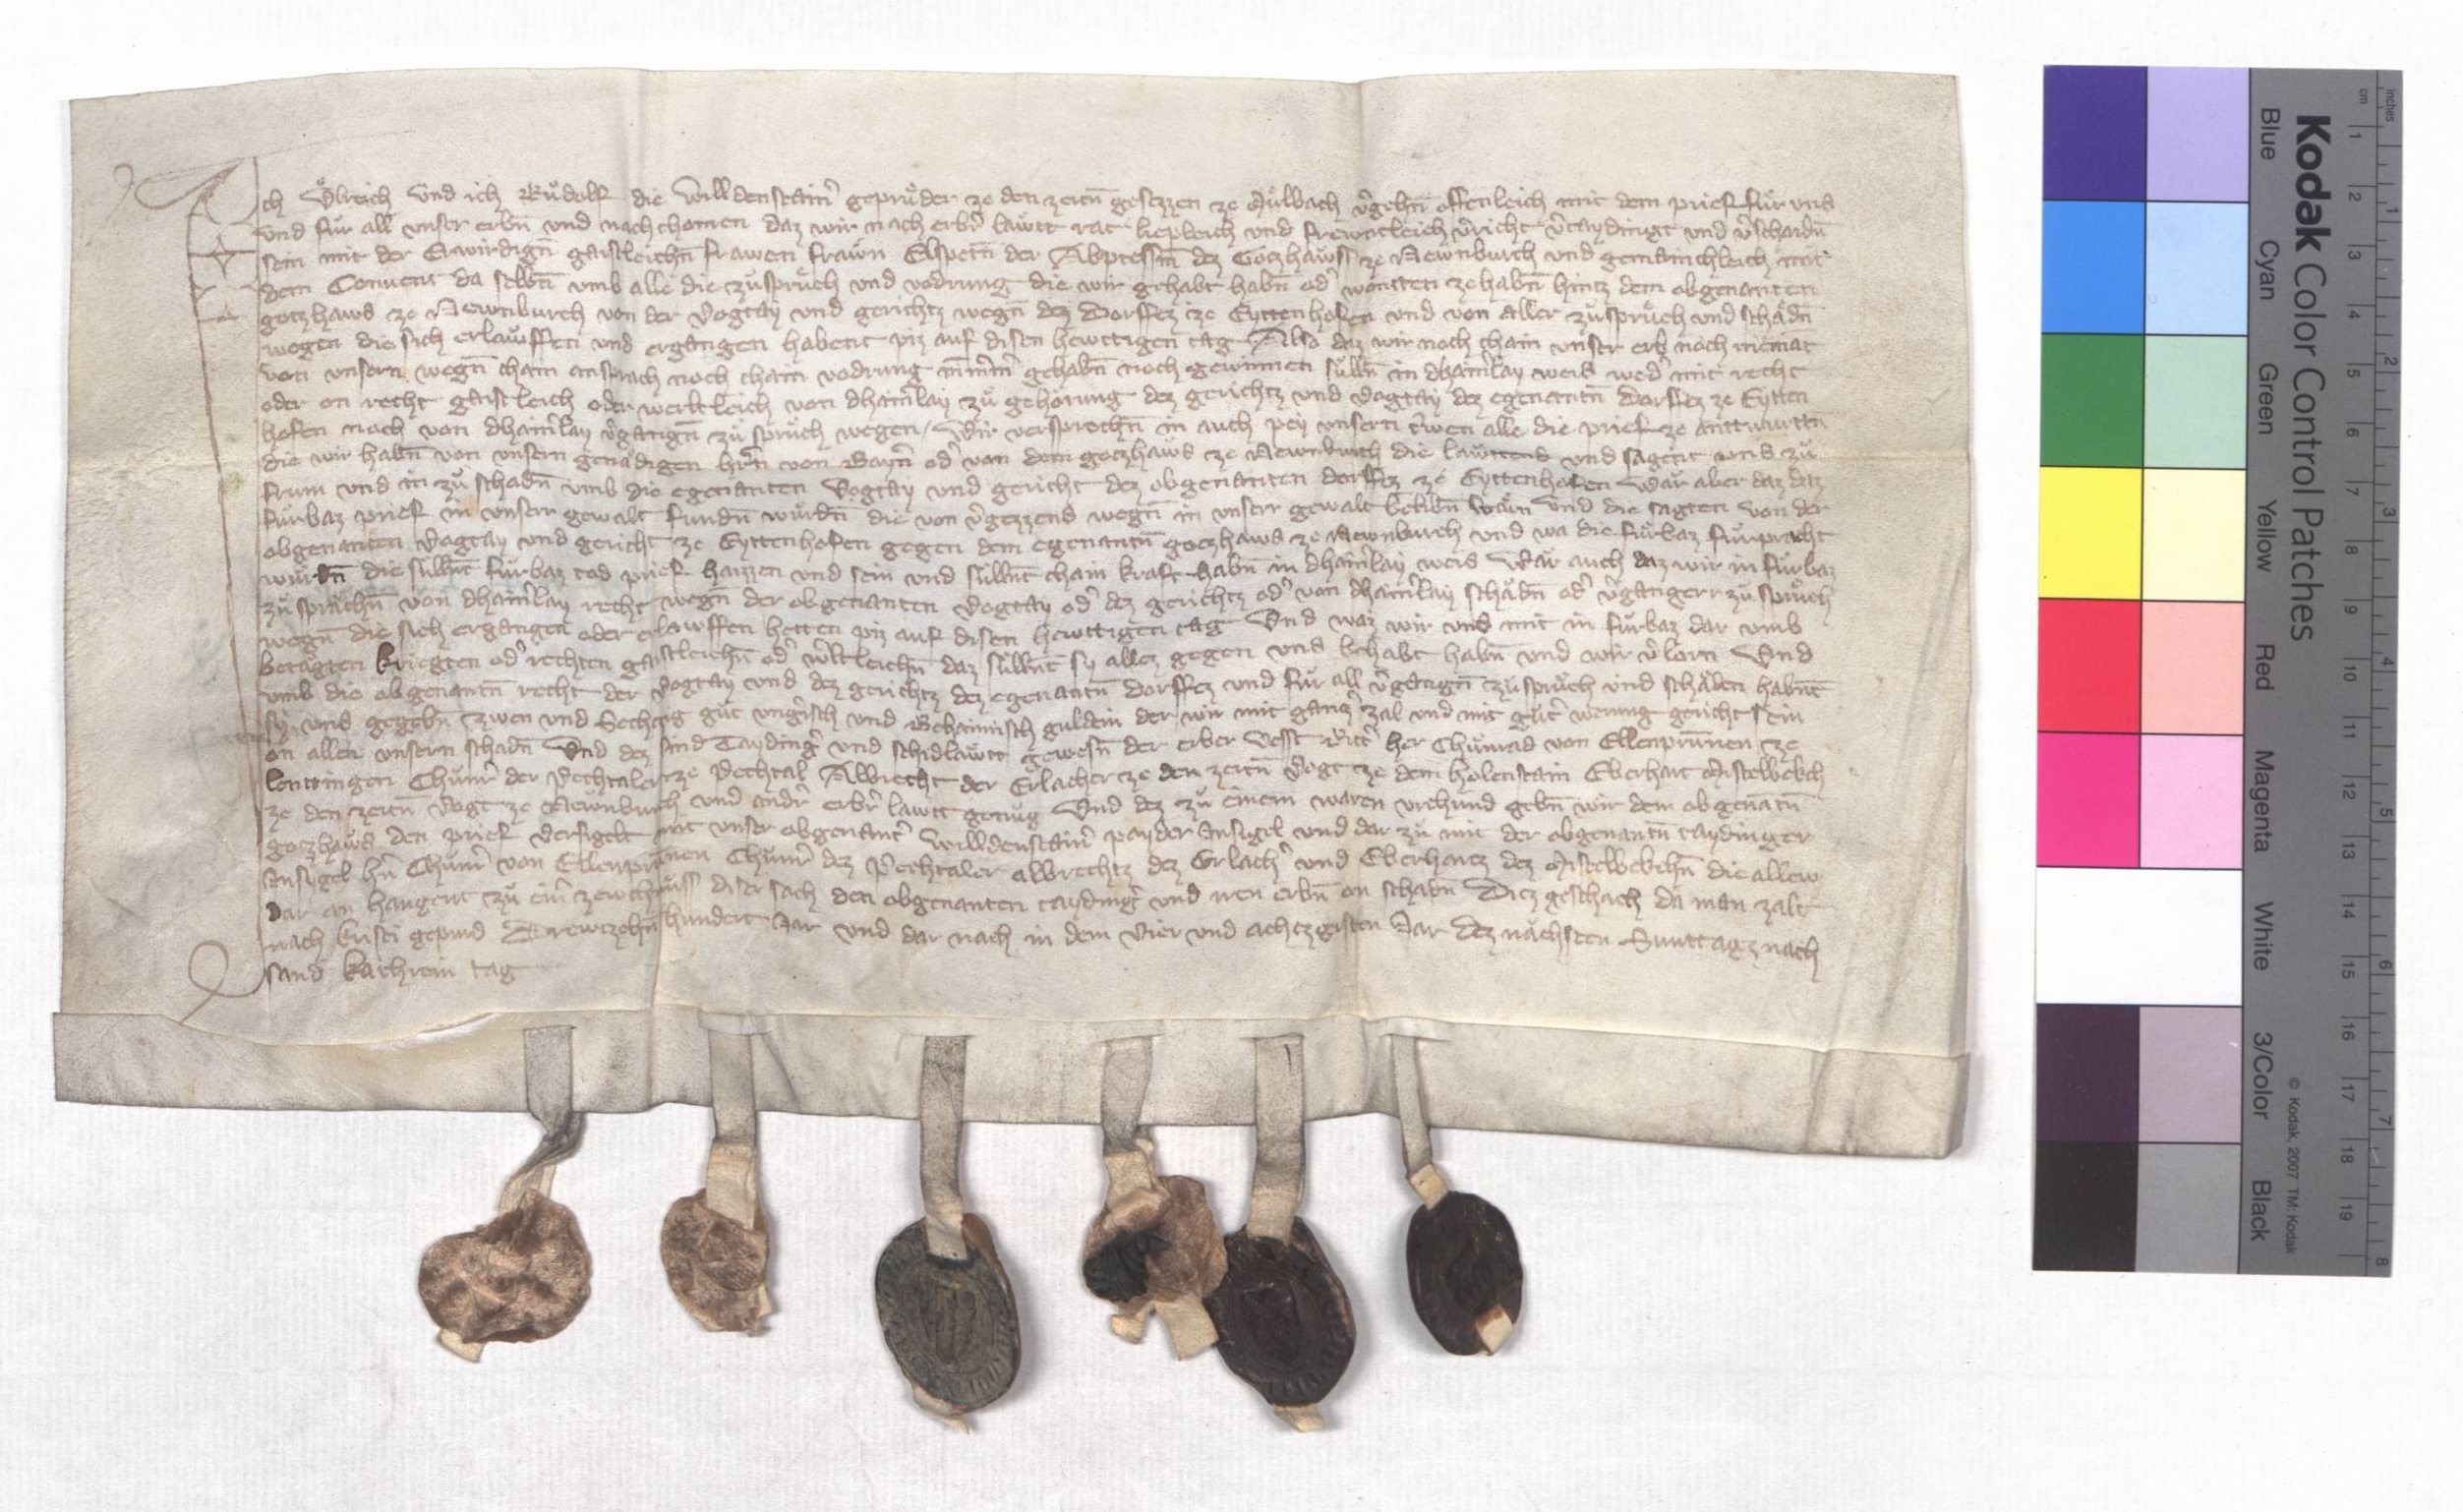 Ich Ůlreich und ich Růdolf die Willdenstain̄ geprůder ze den zeitn̄ gesezzen ze Můlbach v̓gehn̄ offenleich mit dem prief fur uns
und fur all unser erbn̄ und nachchomen daz wir nach erb̓r lawtt rat liepleich und frewntleich v̓richt v̓taydingt und v̓schaidn̄
sein mit der Erwirdign̄ gaistleichn̄ frawen frawn Elspetn̄ der Abptessin̄ dez Goczhawss ze Newnburch und gemainchleich mit
dem Convent da selbn̄ umb alle die zůsprůch und vodrung die wir gehabt habn̄ od̓ wontten ze habn̄ hintz dem obgenanten
gotzhaws ze Newnburch von der Vogtay und gerichtz wegn̄ dez Dorffez ze Eyttenhofen und von aller zůsprůch und schadn̄
wegen die sich erlawffen und ergangen habent piz auf disen hewttigen tag Also daz wir noch chain unser erb noch niemat
von unsern wegn̄ chain ansprach noch chain vodrung nim̄m̓ gehabn̄ noch gewinnen sulln̄ in dhain̓lay weis wed̓ mit recht
oder on recht gaistleich oder werltleich von dhain̓lay zů gehorung dez gerichtz und Vogtay dez egenantn̄ Dorffez ze Eytten
hofen noch von dhain̓lay v̓gangn̄ zů sprůch wegen / Wir versprechn̄ in auch pey unsern trwen alle die prief ze anttwurttn̄
die wir habn̄ von unsern genadigen hr̄n von Bayrn̄ od̓ von dem goczhaws ze Newnburch die lawttend und sagent uns zů
frum und in zů schadn̄ umb die egenanten Vogtay und gericht dez obgenanten dorffez ze Eyttenhofen Wär aber daz daz
furbaz prief in unserr gewalt fundn̄ wurdn̄ die von v̓gezzens wegn̄ in unserr gewalt belibn̄ wärn und die sagten von der
obgenanten Vogtay und gericht ze Eyttenhofen gegen dem egenantn̄ goczhaws ze Newnburch und wa die furbaz furpracht
wurdn̄ die sullnt̄ furbaz tod prief haizzen und sein und sullnt̄ chain kraft habn̄ in dhain̓lay weis Wär auch daz wir in furbaz
zů sprachn̄ von dhain̓lay recht wegn̄ der obgenanten Vogtay od̓ dez gerichtz od̓ von dhain̓lay schadn̄ od̓ v̓gangerr zů sprůch
wegn̄ die sich ergangen oder erlawffen hetten piz auf disen hewttigen tag Und waz wir uns mit in furbaz dar umb
betagten kriegten od̓ rechten gaistleichn̄ od̓ w̓ltleichn̄ daz sullnt̄ sy allez gegen uns behabt habn̄ und wir v̓lorn Und
umb die obgenantn̄ recht der Vogtay und dez gerichtz dez egenantn̄ dorffez und fur all v̓gangn̄ zůsprůch und schäden habnt̄
sy uns gegebn̄ zwen und Sechczig gůt ungrisch und Behaimisch guldein der wir mit gancz̓ zal und mit gůt̓ werung gericht sein
on allen unsern schadn̄ Und dez sind Tayding̓ und schidlawtt gewesn̄ der erber vesst Ritt̓ her Chůnrad von Ellenprunnen ze
lentringen Chůnr̓ der Pechtaler ze Pechtal Albrecht der Erlacher ze den zeitn̄ Vogt ze dem holenstain Eberhart Mistelbekch
ze den zeitn̄ Vogt ze Newnburch und andr̓ erbr̓ lawtt genug Und dez zů einem waren urchund gebn̄ wir dem obgenātn̄
goczhaws den prief versigelt mit unser obgenant̓ Willdenstain̓ payder Insigel und dar zů mit der obgenantn̄ taydinger
Insigel hn̄ Chůnr̓ von Ellenprunnen Chůnr̓ dez Pechtaler albrechtz dez Erlach̓ und Eberhartz dez Mistelbekchn̄ die allew
dar an hangent zů ein̓ zewchnuss diser sach den obgenanten tayding̓ und iren erbn̄ on schadn̄ Diez geschach da man zalt
nach kristi gepurd Drewczehn̄ hundert Jar und dar nach in dem Vier und achtzgisten Jar dez nachsten Sunttagz nach
sand kathrein tag
Kodak Color Control Patches
Blue Cyan Green Yellow Red Magenta White 3/Color Black
© Kodak, 2007 TM: Kodak
cm 1 2 3 4 5 6 7 8 9 10 11 12 13 14 15 16 17 18 19
inches 1 2 3 4 5 6 7 8